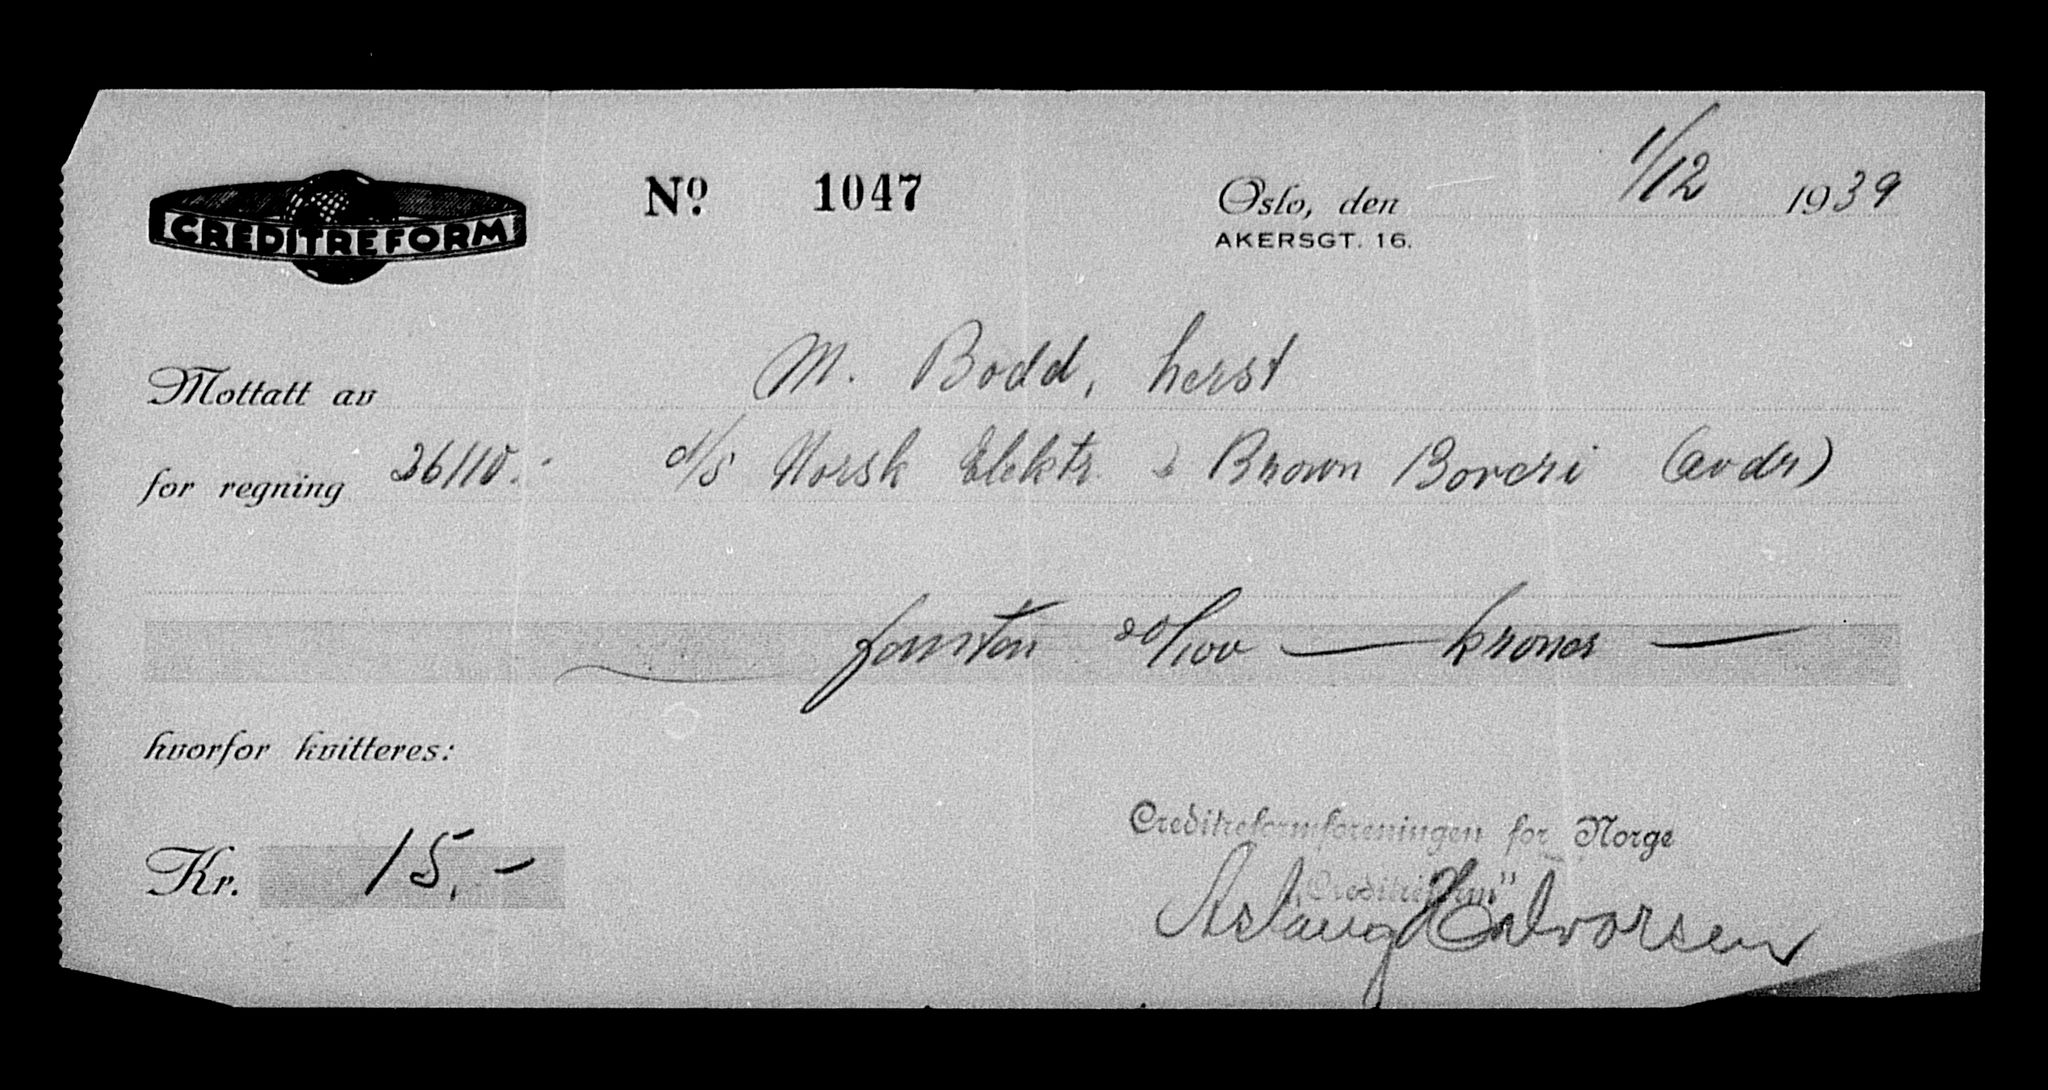 CREDITREFORM
Nº 1047
Oslo, den 1/12 1939
AKERSGT. 16.
Mottatt av M. Bodd, herst
for regning 26110.- A/S Norsk Elektr. & Brown Boveri (avdr)
femten 00/100 — kroner —
hvorfor kvitteres:
Kr. 15.-
Creditreformforeningen for Norge
"Creditreform"
Aslaug Halvorsen